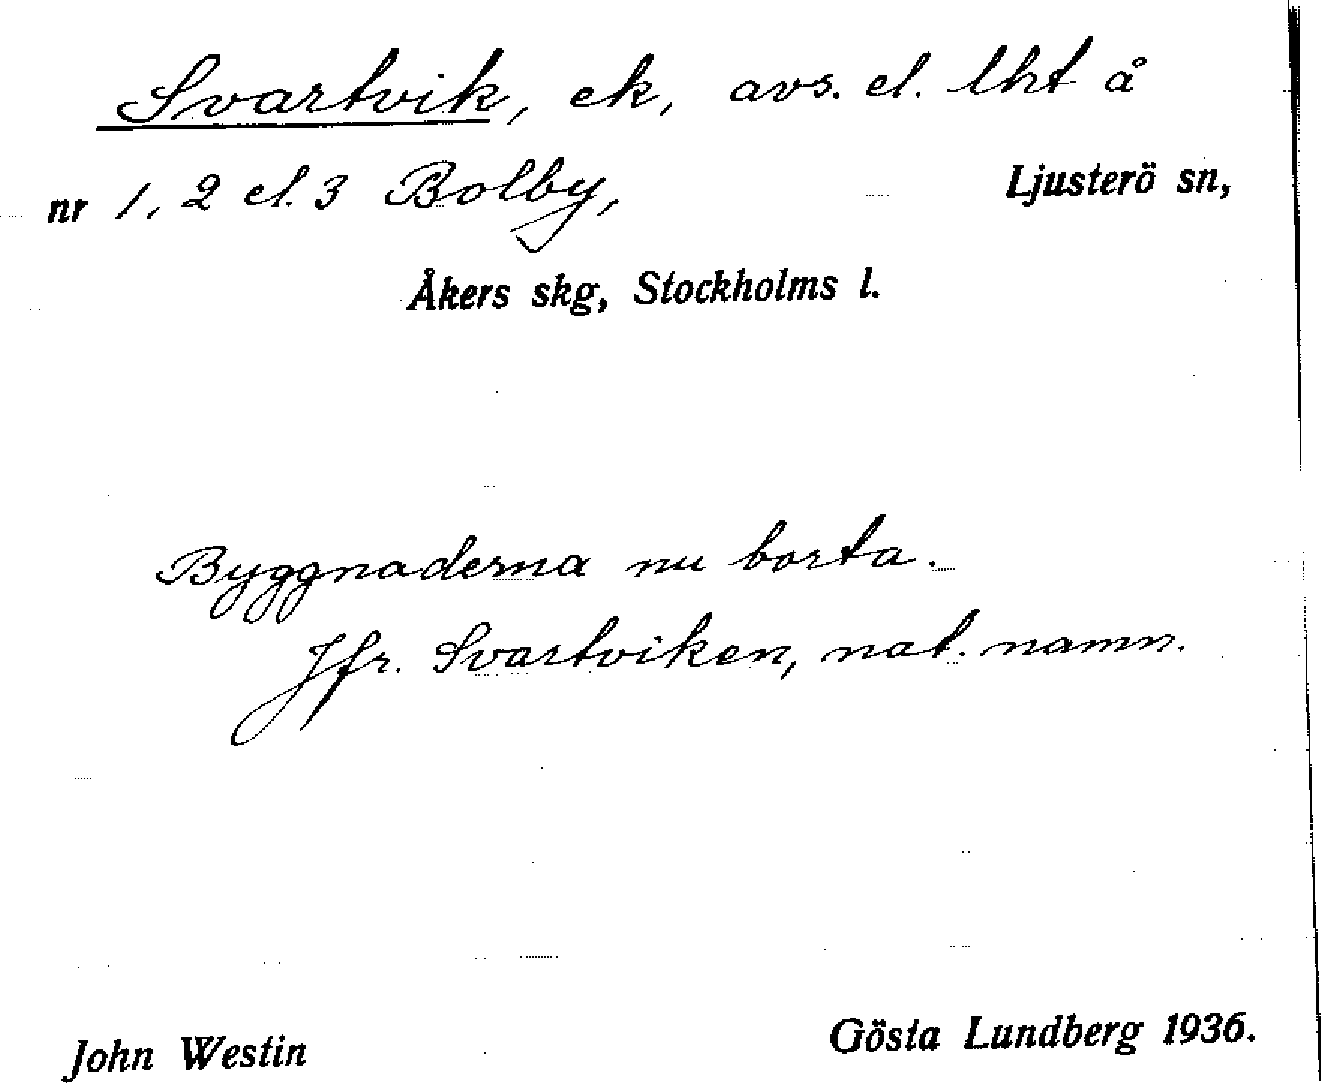 Svartvik, ek, avs. el. lht å
nr 1, 2 el. 3 Bolby, Ljusterö sn,
Åkers skg, Stockholms l.
Byggnaderna nu borta.
Jfr. Svartviken, nat. namn.
John Westin Gösta Lundberg 1936.